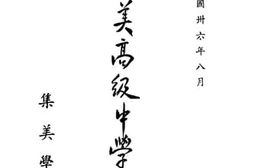 國卅六年八月
美高級中學
集美學